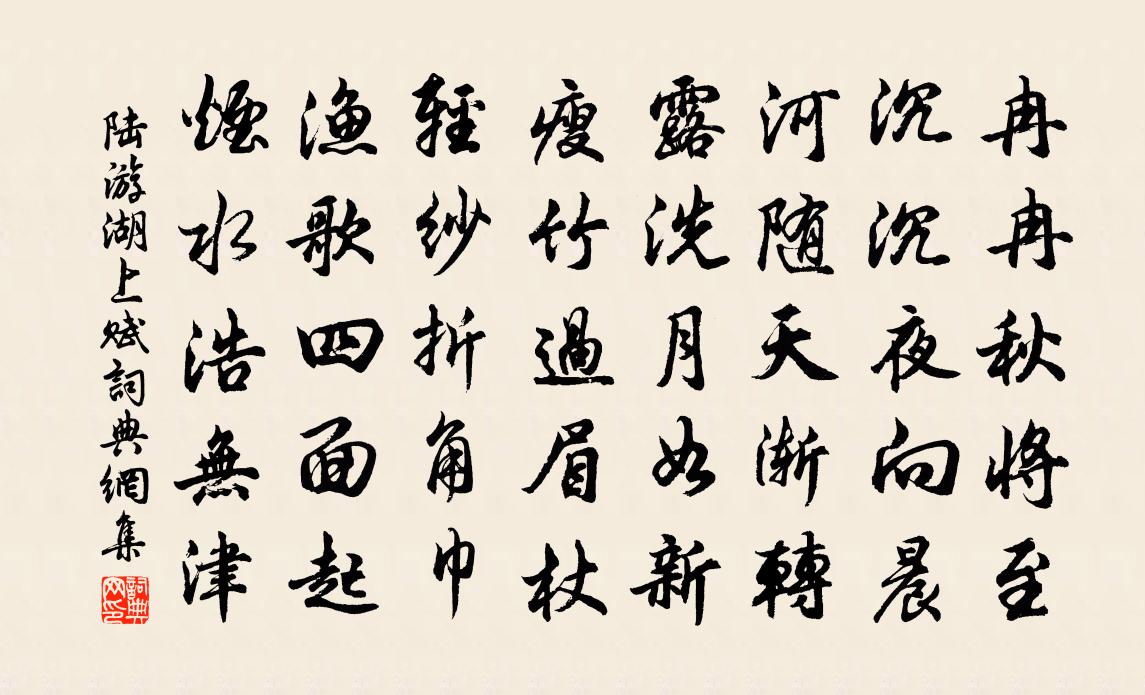 冉冉秋將至
沉沉夜向晨
河隨天漸轉
露洗月如新
瘦竹過眉杖
輕紗折角巾
漁歌四面起
煙水浩無津
陆游湖上赋詞典網集
詞典
网印